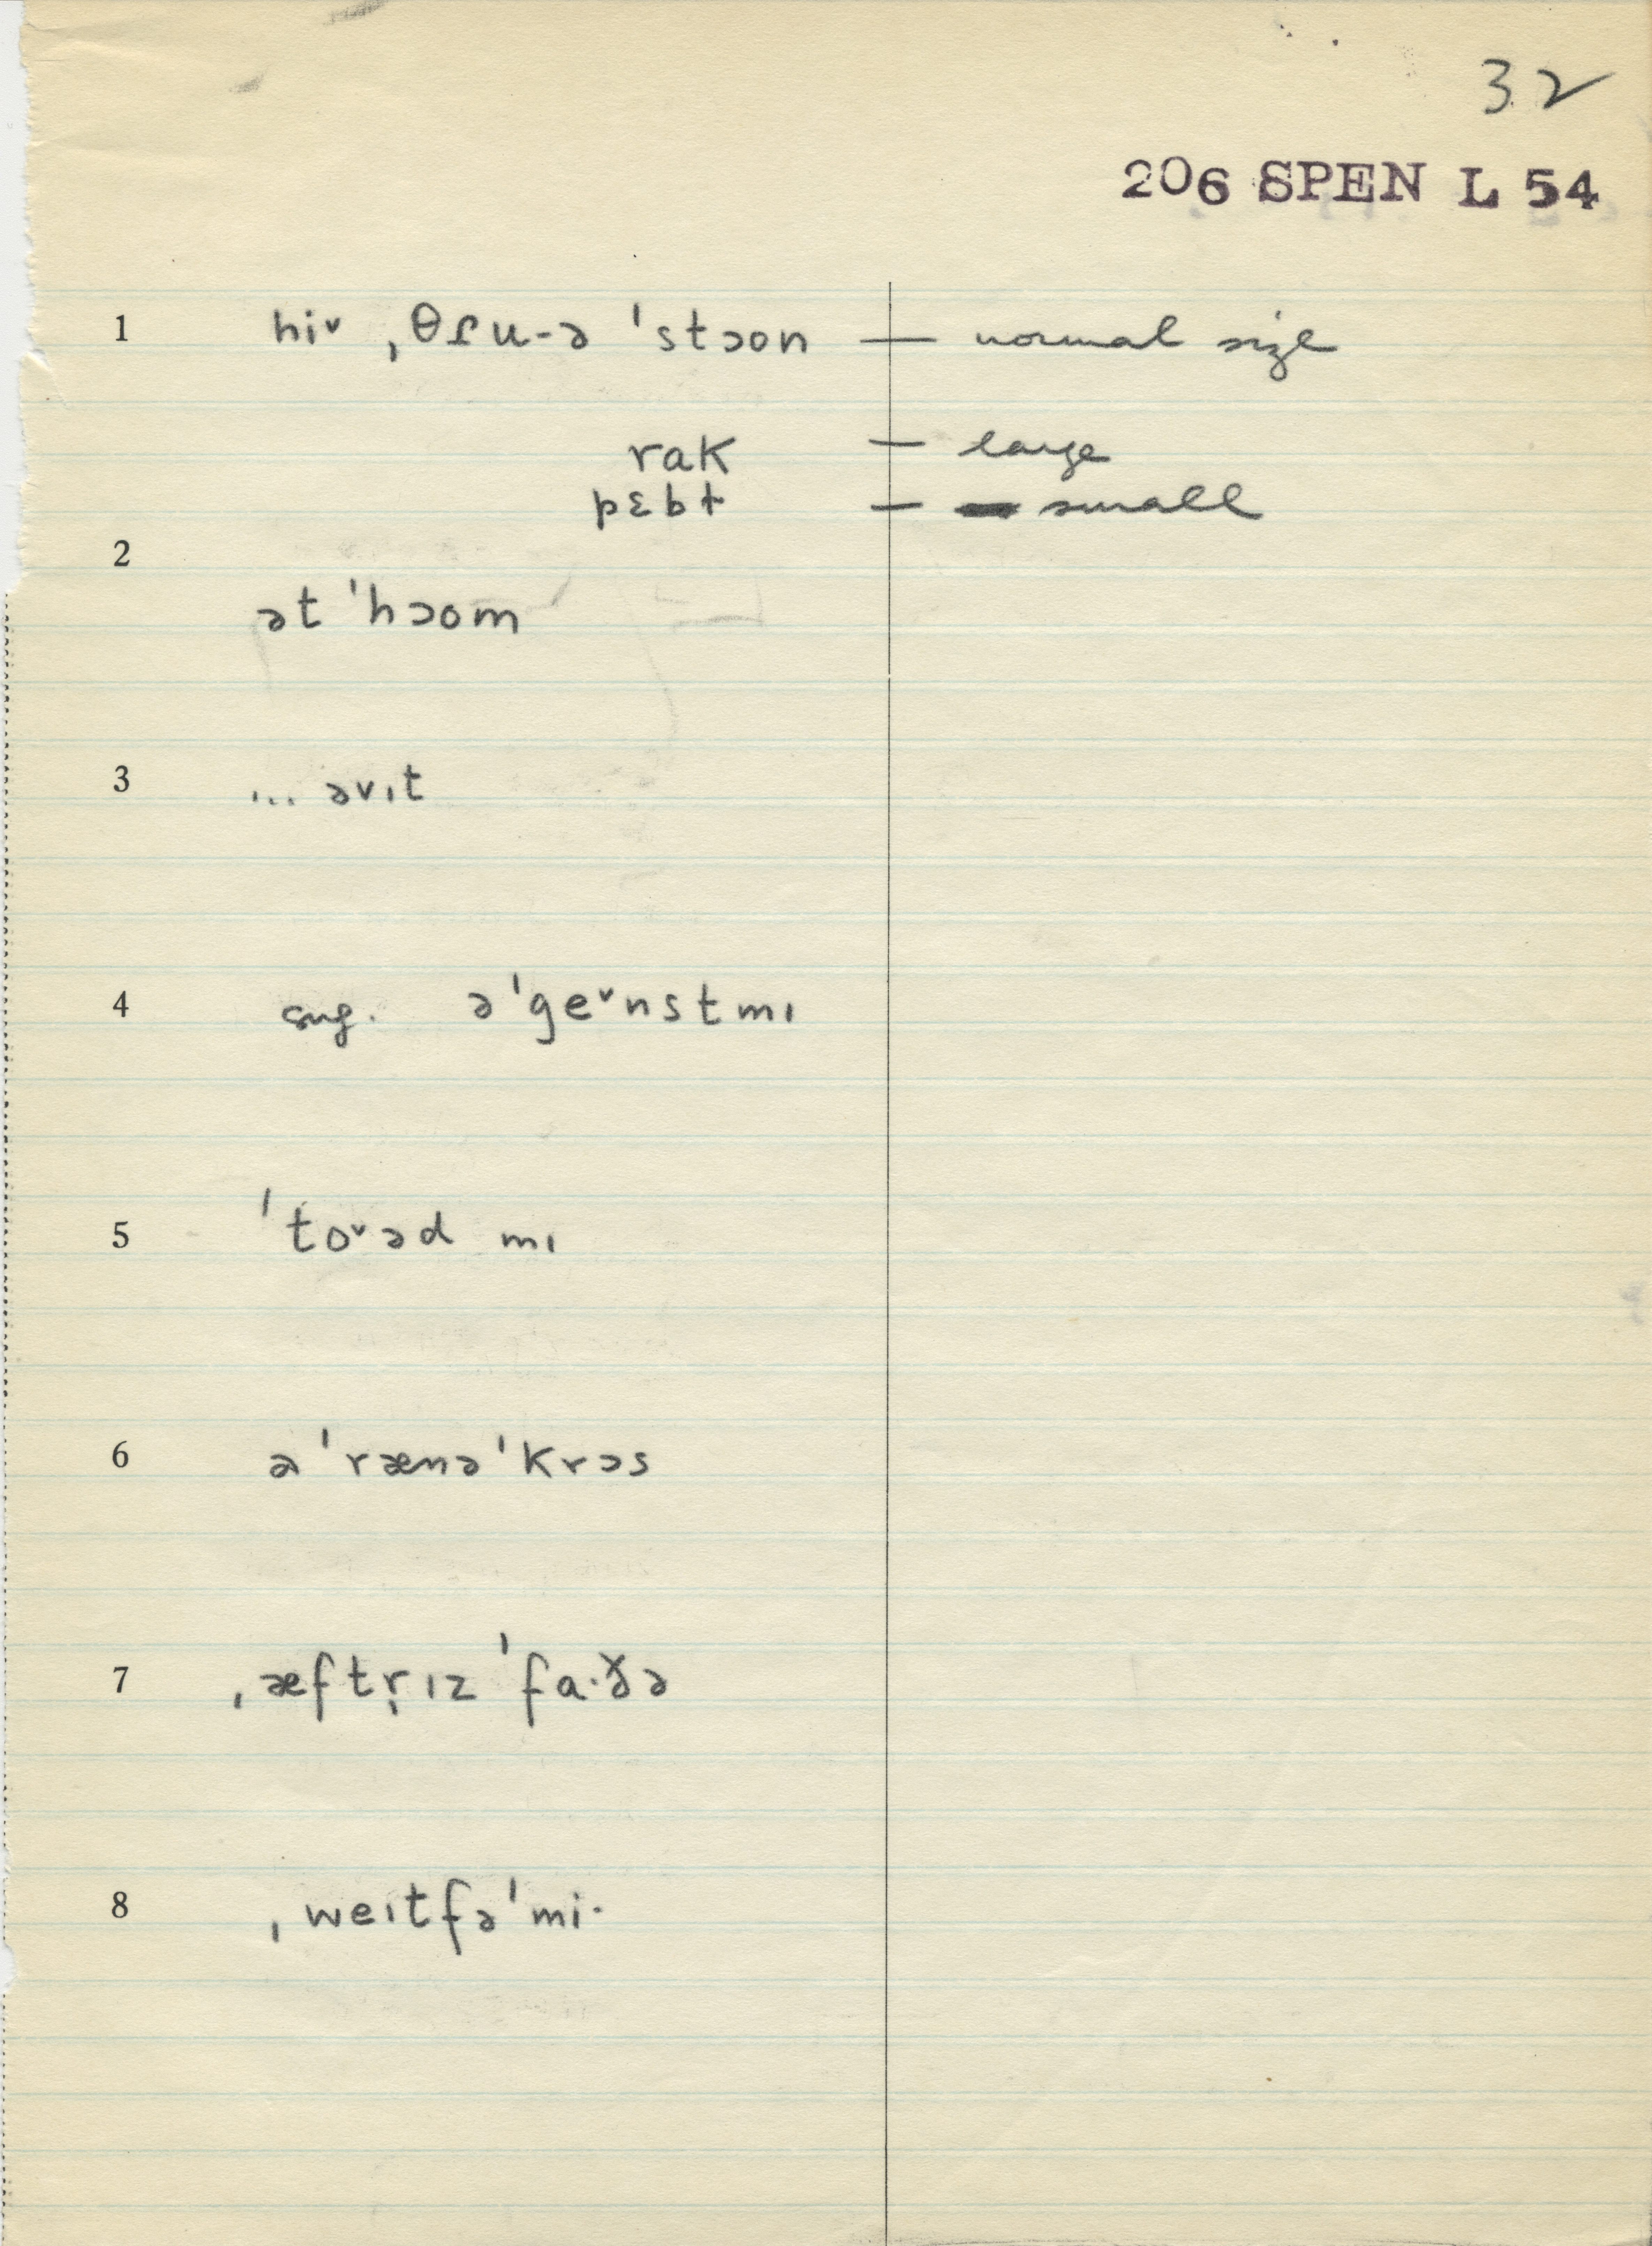 32
206 SPEN L 54
1 hiᵛ ˌθɾu-ə ˈstɔon — normal size
rak — large
pɛbt — small
2
ət ˈhɔom
3 ... əvɪt
4 sug. əˈgeᵛnstmɪ
5 ˈtoᵛəd mɪ
6 əˈrænəˈkrɔs
7 ˌæftr̩ɪz ˈfa·ɤ̆ə
8 ˌweɪtfəˈmi·